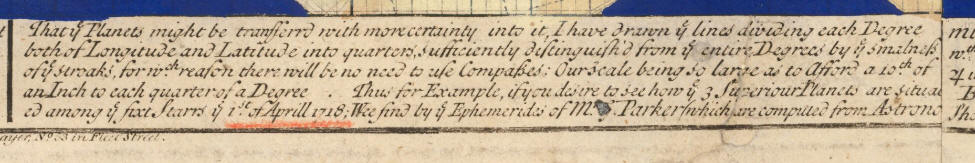 That yͤ Planets might be transferrd with more certainty into it, I have drawn yͤ lines dividing each Degree
both of Longitude and Latitude into quarters, sufficiently distinguish'd from yͤ entire Degrees by yͤ smalneſs
of yͤ stroaks, for wᶜʰ reason there will be no need to use Compaſses: Our Scale being so large as to Afford a 10ᵗʰ of
an Inch to each quarter of a Degree . Thus for Example, if you desire to see how yͤ 3 Superiour Planets are situat
ed among yͤ fixt Starrs yͤ 1ˢᵗ of Aprill 1718; Wee find by yͤ Ephemerides of Mʳ. Parker (which are computed from Astrono
ayer, Nº. 53 in Fleet Street.